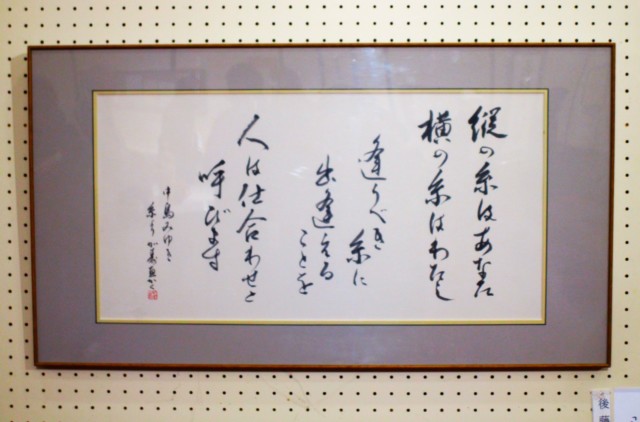 縦の糸はあなた
横の糸はわたし
逢うべき糸に
出逢えることを
人は仕合わせと
呼びます
中島みゆき
糸より
後藤